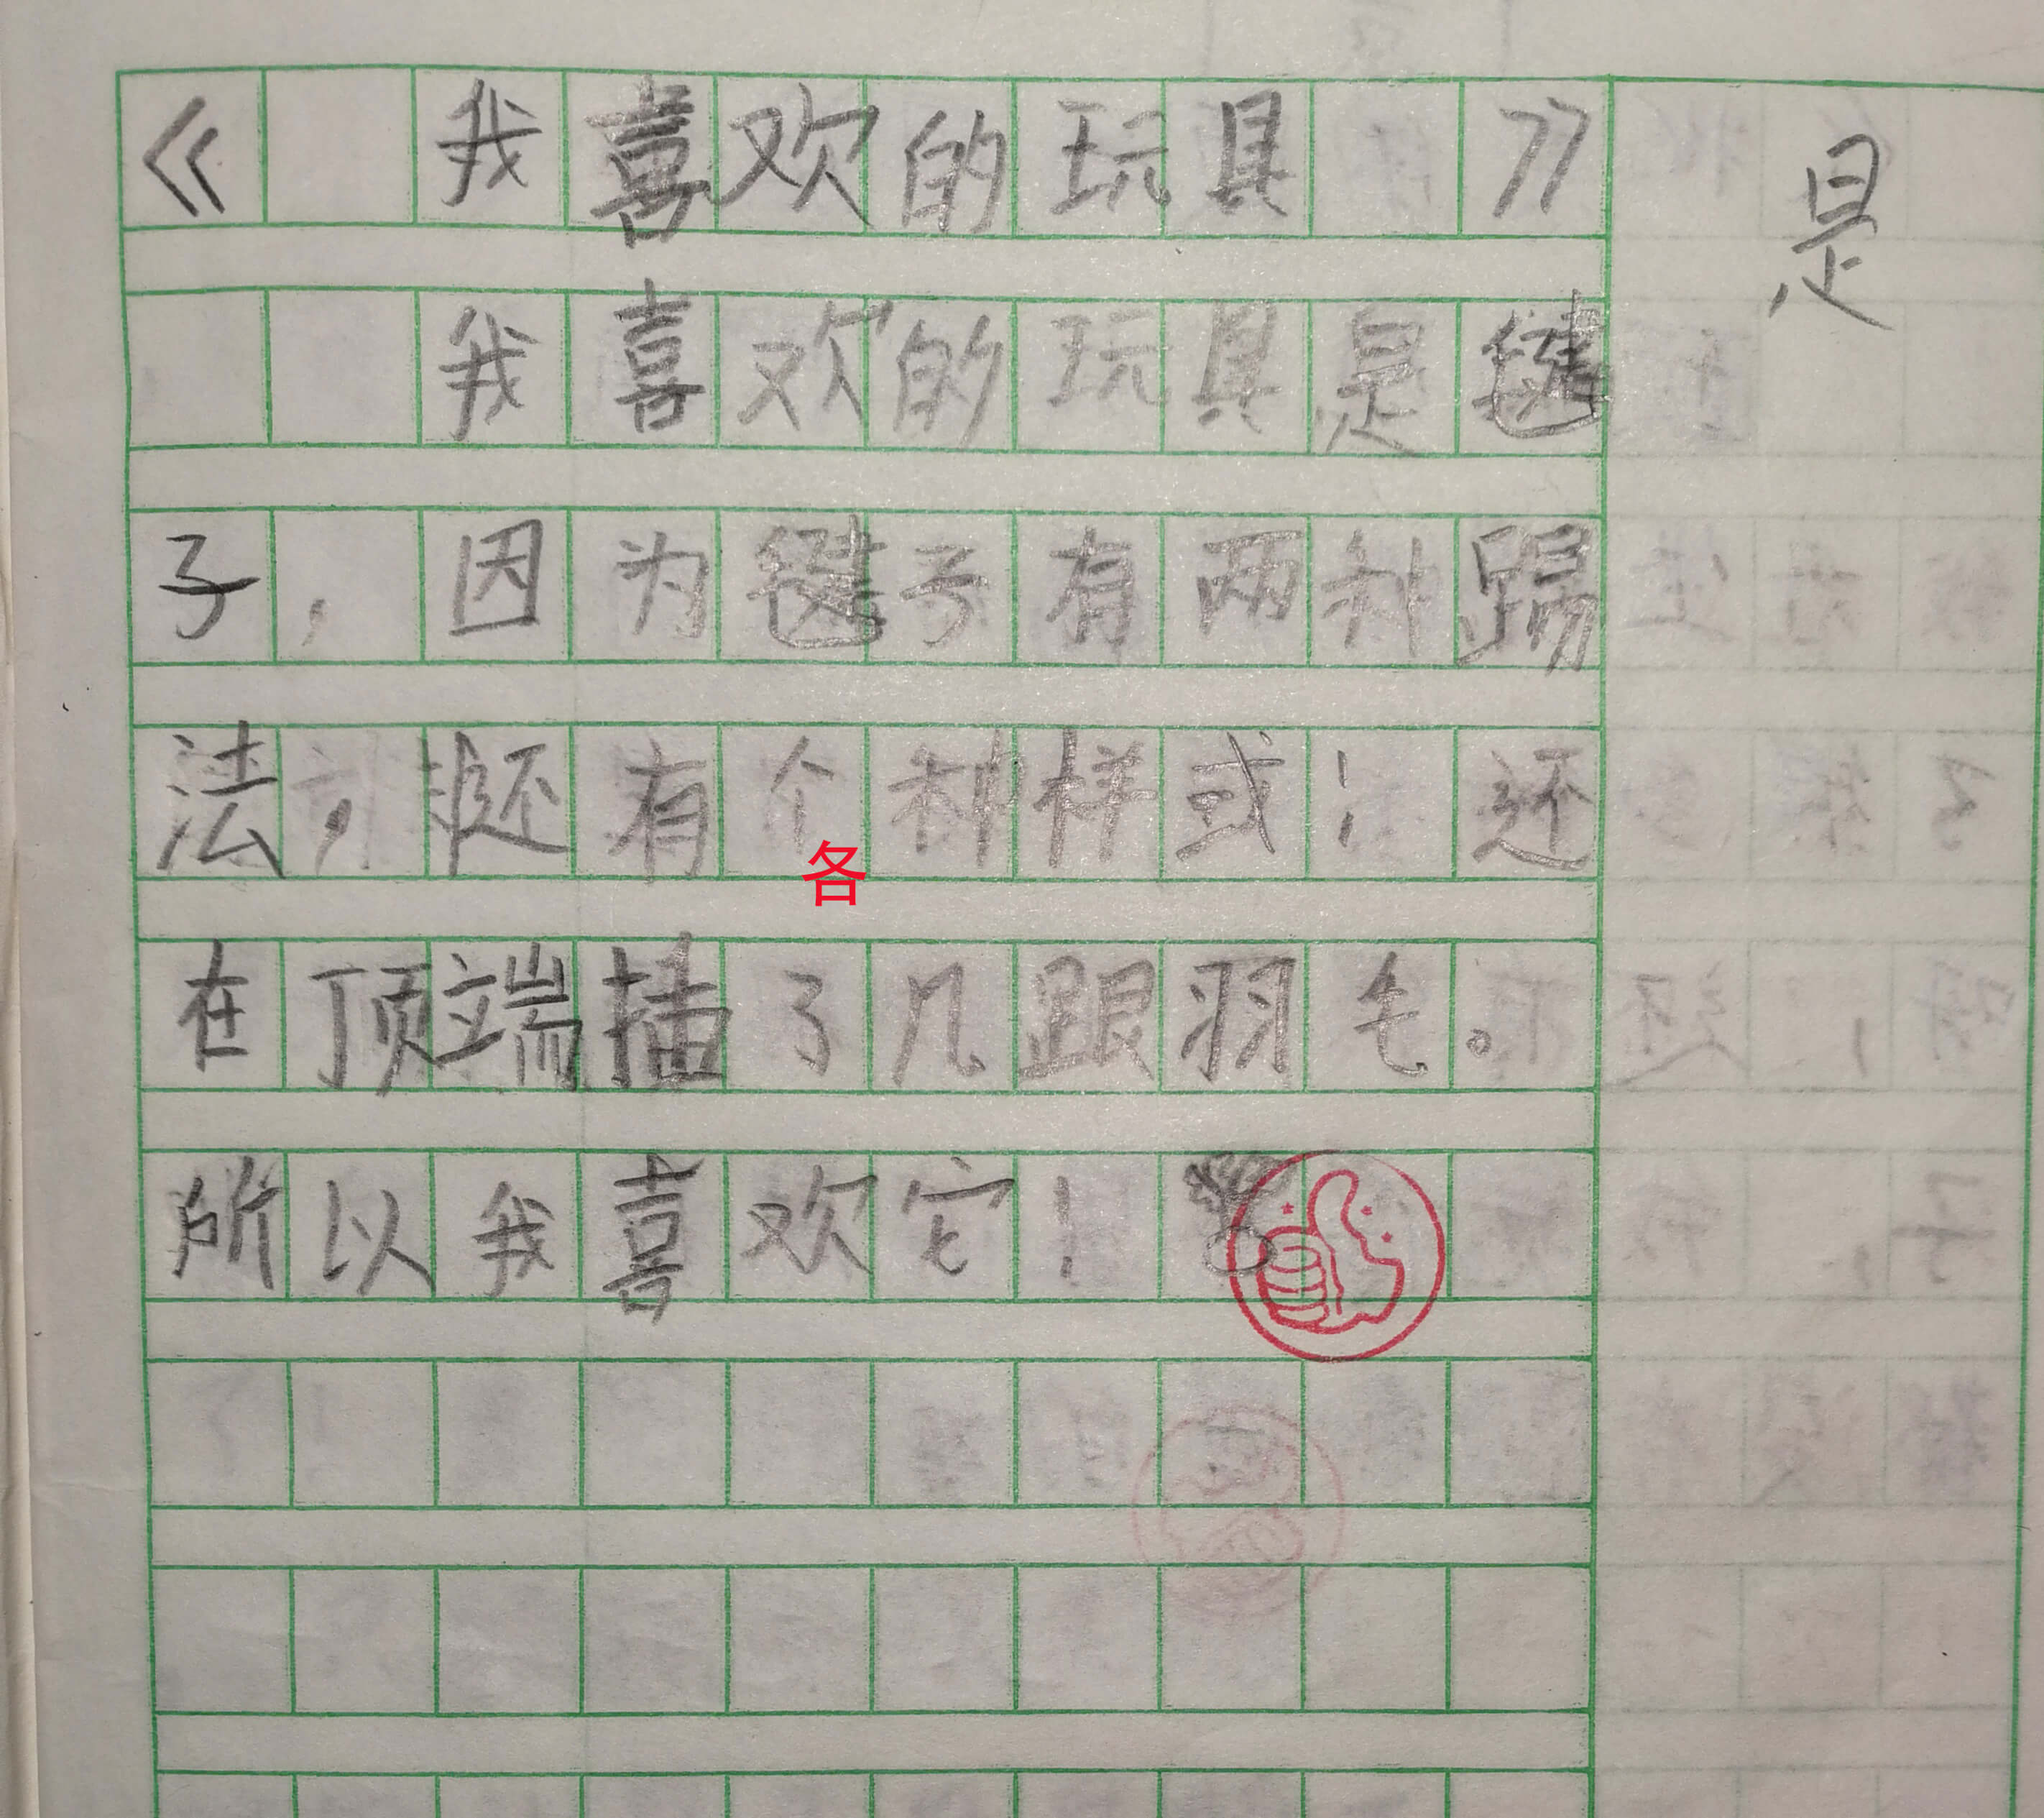 《 我喜欢的玩具 》
是
我喜欢的玩具是毽
子，因为毽子有两种踢
法，还有个种样或！还
各
在顶端插了几跟羽毛。
所以我喜欢它！